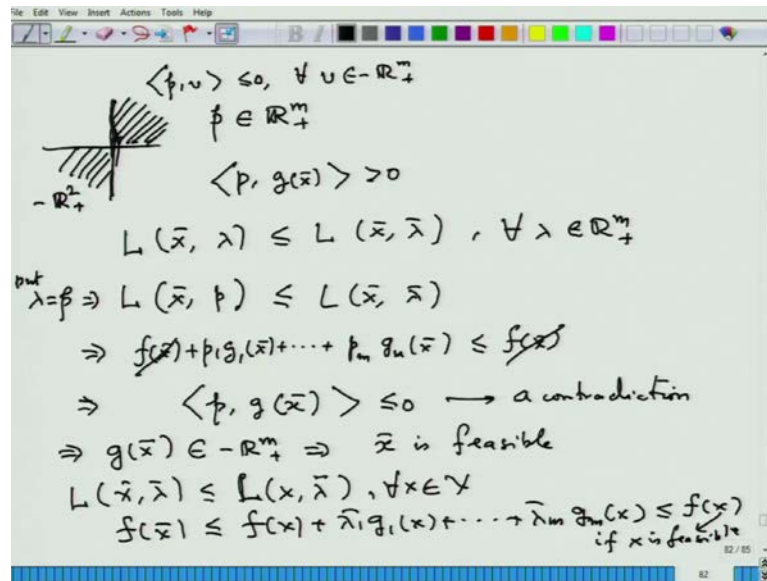 File Edit View Insert Actions Tools Help
⟨p, v⟩ ≤0, ∀ v ∈ -ℝᵐ₊
p ∈ ℝᵐ₊
-ℝ²₊
⟨p, g(x̄)⟩ >0
L(x̄, λ) ≤ L(x̄, λ̄), ∀ λ ∈ ℝᵐ₊
put λ=p ⇒ L(x̄, p) ≤ L(x̄, λ̄)
⇒ f(x̄)+p₁g₁(x̄)+⋯+ pₘ gₘ(x̄) ≤ f(x̄)
⇒ ⟨p, g(x̄)⟩ ≤0 → a contradiction
⇒ g(x̄) ∈ -ℝᵐ₊ ⇒ x̄ is feasible
L(x̄, λ̄) ≤ L(x, λ̄), ∀x∈X
f(x̄) ≤ f(x) + λ̄₁g₁(x)+⋯+ λ̄ₘ gₘ(x) ≤ f(x)
if x is feasible
82 / 85
82